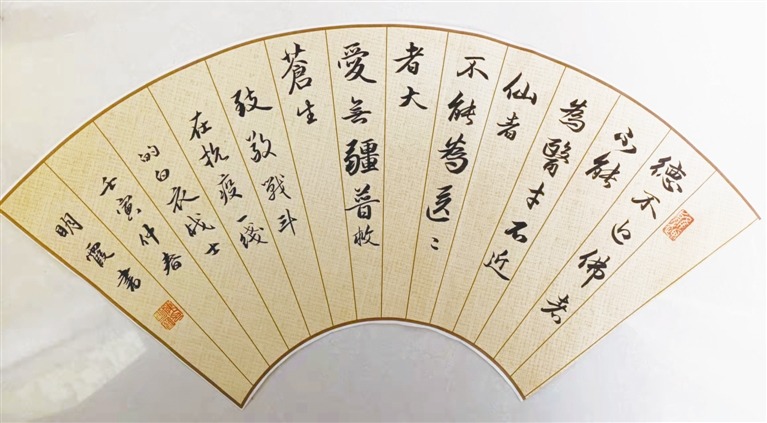 德不近佛者
不能
為醫才不近
仙者
不能為医〻
者大
愛无疆普救
蒼生
致敬戰斗
在抗疫一綫
的白衣战士
壬寅仲春
明霞書